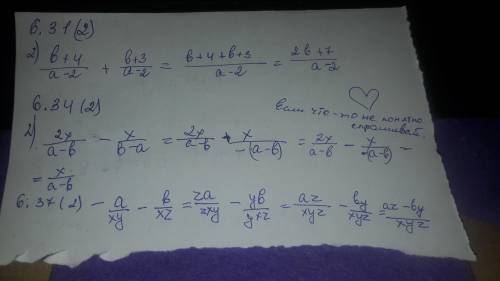 6.31(2)
2) b+4/a-2 + b+3/a-2 = b+4+b+3/a-2 = 2b+7/a-2
6.34(2)
если что-то не понятно
спрашивай.
2) 2x/a-b - x/b-a = 2x/a-b - x/-(a-b) = 2x/a-b - x/-(a-b) -
= x/a-b
6.37(2) - a/xy - b/xz = za/zxy - yb/yxz = az/xyz - by/xyz = az-by/xyz